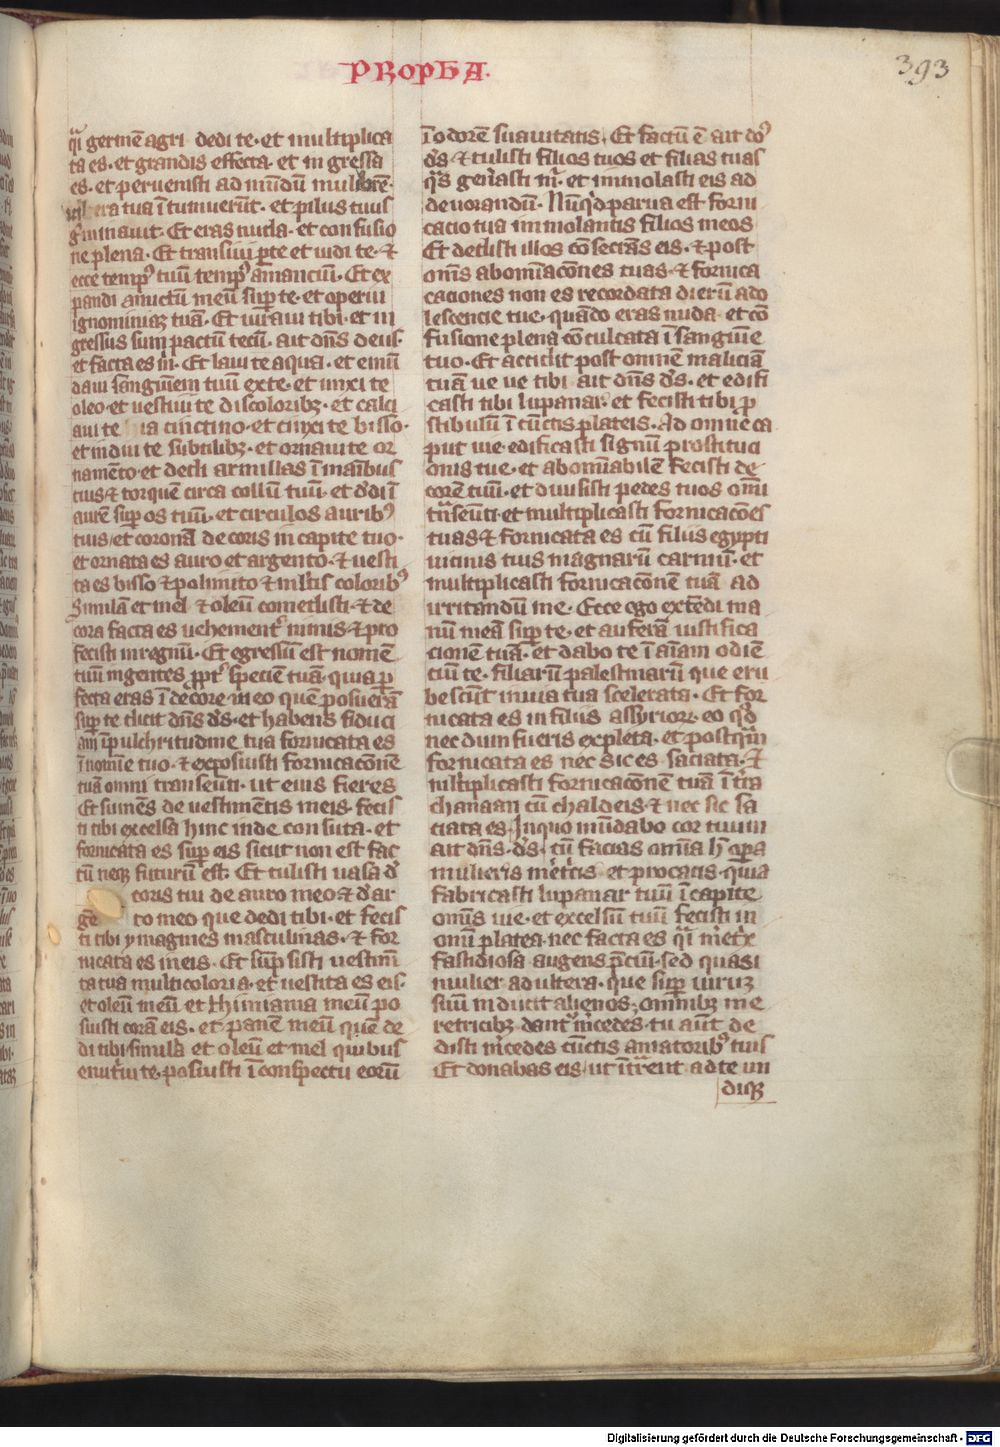 PROPHA.
393
q̄i germē agri dedi te· et multiplica
ta es· et grandis effecta· et ingressa
es· et peruenisti ad mūdū mulibrē·
ubera tua ītumuerūt· et pilus tuus
gͥminauit· Et eras nuda· et confusio
ne plena· Et transiui p̱te et uidi te· ⁊
ecce tempꝰ tuū tempꝰ amanciū· Et ex
pandi amictū meū suꝑ te· et operui
ignominiaꝫ tuā· Et iuraui tibi· et in
gressus sum pactū tecū· ait dn̄s deus·
et facta es m̄· Et laui te aqua· et emū
daui sanguinem tuū ex te· et unxi te
oleo· et uestiui te discoloribꝫ· et calci
aui te iacinctino· et cinxi te bisso·
et indui te subtilibꝫ· et ornaui te or
namēto· et dedi armillas ī manibus
tuis ⁊ torquē circa collū tuū· et dͥdi ī
aurē suꝑ os tuū· et circulos auribꝰ
tuis· et coronā decoris in capite tuo·
et ornata es auro et argento· ⁊ uesti
ta es bisso ⁊ polimito ⁊ mltis coloribꝰ
Similā et mel ⁊ oleū comedisti· ⁊ de
cora facta es uehementͥ nimis· ⁊ pro
fecisti in regnū· Et egressū est nomē
tuū in gentes ꝓptͥ speciem tuā· quia ꝑ
fecta eras ī decore meo quē posuerā
suꝑ te dicit dn̄s dͥs· et habens fiduci
am ī pulchritudine tua fornicata es
ī nomīe tuo· ⁊ exposuisti fornicacōnē
tuā omni transeūti· ut eius fieres
Et sumēs de uestimētis meis· fecis
ti tibi excelsa hinc inde consuta· et
fornicata es suꝑ eis sicut non est fac
tū neqꝫ futurū est· Et tulisti uasa dͥ
coris tui de auro meo ⁊ dͥ ar
gē to meo que dedi tibi· et fecis
ti tibi ymagines masculinas· ⁊ for
nicata es in eis· Et sūpsisti uestim̄
ta tua multicoloria· et uestita es eis·
et oleū meū et thimiama meū po
suisti corā eis· et panē meū quē de
di tibi· similā et oleū et mel quibus
enutͥui te· posuisti ī conspectu eorū
ī odorē suauitatis· Et factū ē ait doꝰ
dͥs ⁊ tulisti filios tuos et filias tuas
qͣs genͥasti m̄· et immolasti eis ad
deuorandū· Nūqͥd parua est forni
cacio tua immolantis filios meos
Et dedisti illos cōsecrās eis· ⁊ post
om̄s abominacōnes tuas· ⁊ fornica
caciones non es recordata dierū ado
lescencie tue· quādo eras nuda et cō
fusione plena cōculcata ī sanguīe
tuo· Et accidit post omnē maliciā
tuā ue ue tibi ait dn̄s dͥs· et edifi
casti tibi lupanar· et fecisti tibi ꝓ
stibulū ī cūctis plateis· Ad omne ca
put uie· edificasti signū prostituci
onis tue· et abominabilē fecisti de
corē tuū· et diuisisti pedes tuos om̄i
tn̄seūti· et multiplicasti fornicacōes
tuas ⁊ fornicata es cū filiis egypti
uicinis tuis magnarū carniū· et
multiplicasti fornicacōnē tuā ad
irritandū me· Ecce ego extēdi ma
nū meā suꝑ te· et auferā iustifica
cionē tuā· et dabo te ī aīam odiē
ciū te· filiarū palestinarū que eru
bescūt in uia tua scelerata· Et for
nicata es in filiis assyrioꝝ· eo qͥd
nec dum fueris expleta· et postqͣm
fornicata es nec sic es saciata· ⁊
mltiplicasti fornicacōnē tuā ī tr̄a
chanaan cū chaldeis· ⁊ nec sic sa
ciata es· In quo mūdabo cor tuum
ait dn̄s· dͥs· cū facias omīa h̄ oꝑa
mulieris mertͥcis et procacis· quia
fabricasti lupanar tuū ī capite
omīs uie· et excelsū tuū fecisti in
omī platea· nec facta es qͣi mͥetͥx
fastidiosa augens p̄ciū· sed quasi
mulier adultera· que suꝑ uirū
suū inducit alienos· omnibꝫ me
retricibꝫ dantͥ mͥcedes· tu aūt de
disti mͥcedes cūctis amatoribꝰ tuis
Et donabas eis· ut ītrͣrent ad te un
diqꝫ
Digitalisierung gefördert durch die Deutsche Forschungsgemeinschaft - DFG